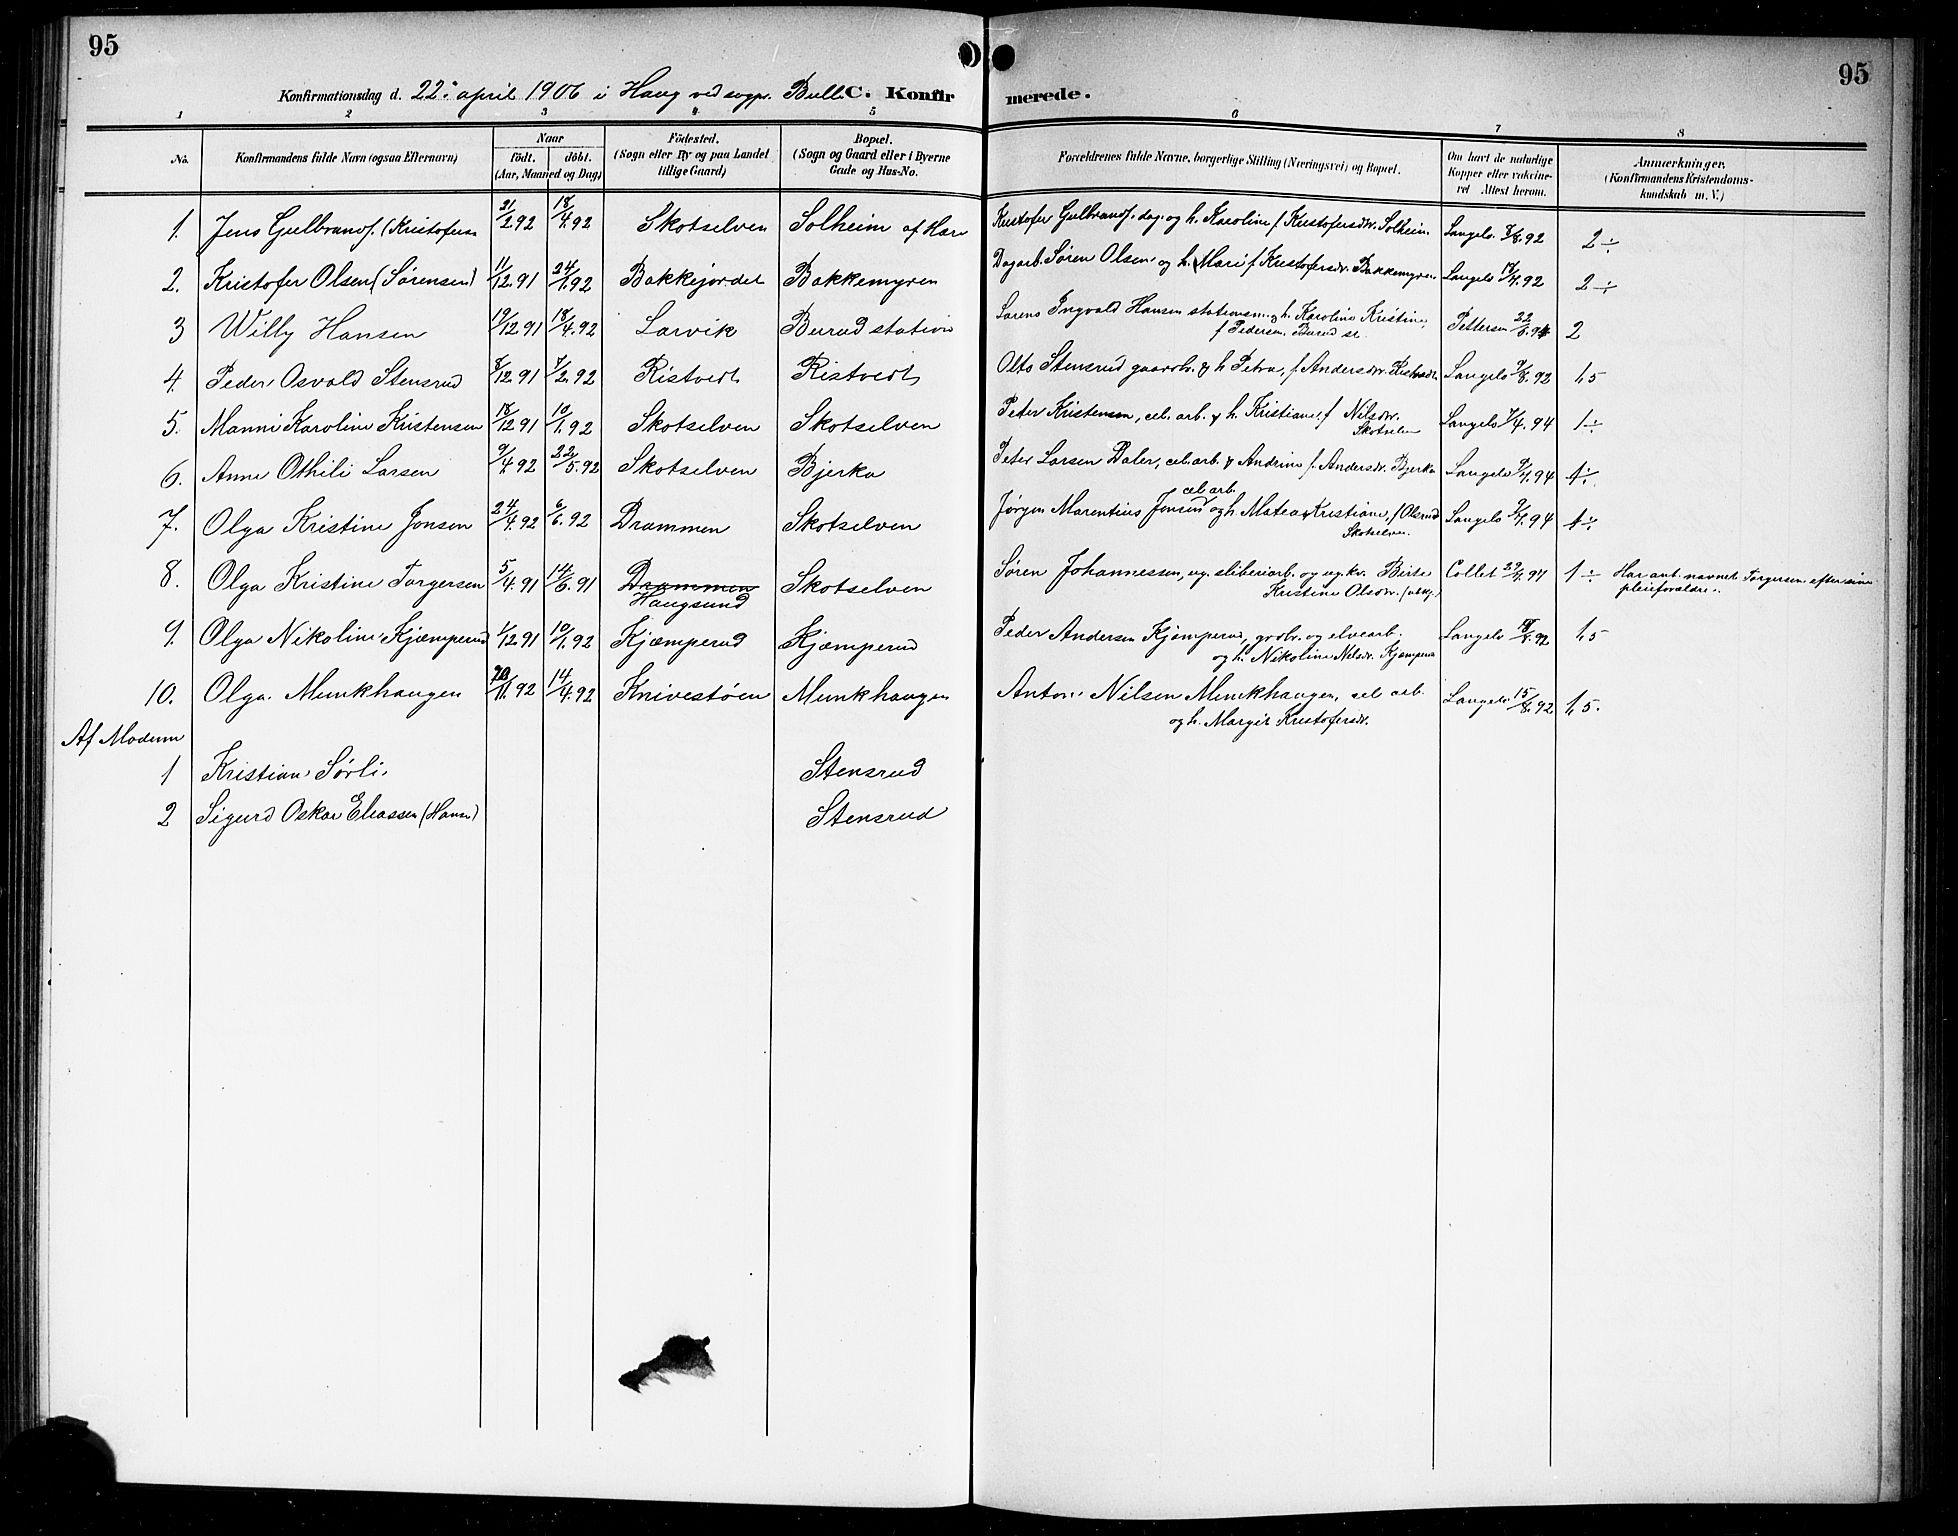 95
95
Konfirmationsdag d. 22. april 1906 i Haug ved sogpr. Bull. C. Konfirmerede.
1 2 3 4 5 6 7 8
No. Konfirmandens fulde Navn (ogsaa Efternavn) Naar født. døbt. (Aar, Maaned og Dag) Fødested. (Sogn eller By og paa Landet tillige Gaard) Bopæl. (Sogn og Gaard eller i Byerne Gade og Hus-No. Forældrenes fulde Navne, borgerlige Stilling (Næringsvei) og Bopæl. Om havt de naturlige Kopper eller vakcineret Attest herom. Anmærkninger. (Konfirmandens Kristendomskundskab m. V.)
1. Jens Gulbrands. (Kristofersen 21/2 92 18/4 92 Skotselven Solheim af Hare Kristofer Gulbrands. dag. og h. Karoline f. Kristofersdr. Solheim Langels. 92 2÷
2. Kristofer Olsen (Sørensen) 11/12 91 24/1 92 Bakkejordet Bakkemyren Dagarb. Søren Olsen og h. Mari f. Kristofersdr. Bakkemyren Langels 18/4 92 2÷
3 Willy Hansen 19/12 91 18/4 92 Larvik Burud station Lorens Ingvald Hansen stationsm. og h. Karoline Kristine,
f. Pedersen. Burud st. Pettersen 22/8 94 2
4. Peder Osvald Stensrud 8/12 91 7/2 92 Ristvedt Ristvedt Otto Stensrud gaardbr. & h. Petra, f. Andersdr. Ristvedt Langels 9/8 92 1,5
5. Manni Karoline Kristensen 18/12 91 10/1 92 Skotselven Skotselven Peter Kristensen, cel. arb. & h. Kristiane, f. Nilsdr.
Skotselven Langels 94 1÷
6. Anne Othili Larsen 9/4 92 22/5 92 Skotselven Bjerka Peter Larsen Daler, cel. arb. & Andrine f. Andersdr. Bjerka Langels 94 1÷
7. Olga Kristine Jonsen 24/4 92 6/6 92 Drammen Skotselven Jørgen Marentius Jensen cel arb. og h. Matea Kristiane, f. Olsrud
Skotselven. Langels 94 1÷
8. Olga Kristine Torgersen 5/4 91 14/6 91 Drammen Haugsund Skotselven Søren Johannessen, ug. sliberiarb. og ug. kv. Birte
Kristine Olsdr. Collet 29/4 94 1÷ Har ant. navnet Torgersen efter sine
pleieforældre.
9. Olga Nikoline Kjæmperud 1/12 91 10/1 92 Kjæmperud Kjæmperud Peder Andersen Kjæmperud, grdbr. og elvearb.
og h. Nikoline Nilsdr. Kjæmperud Langels 92 1,5
10. Olga Munkhaugen 92 14/4 92 Knivestøen Munkhaugen Anton Nilsen Munkhaugen, cel arb.
og h. Margit Kristofersdr. Langels 15/8 92 1,5.
Af Modum
1 Kristian Sørli. Stensrud
2 Sigurd Oskar Eliassen (Hans) Stensrud